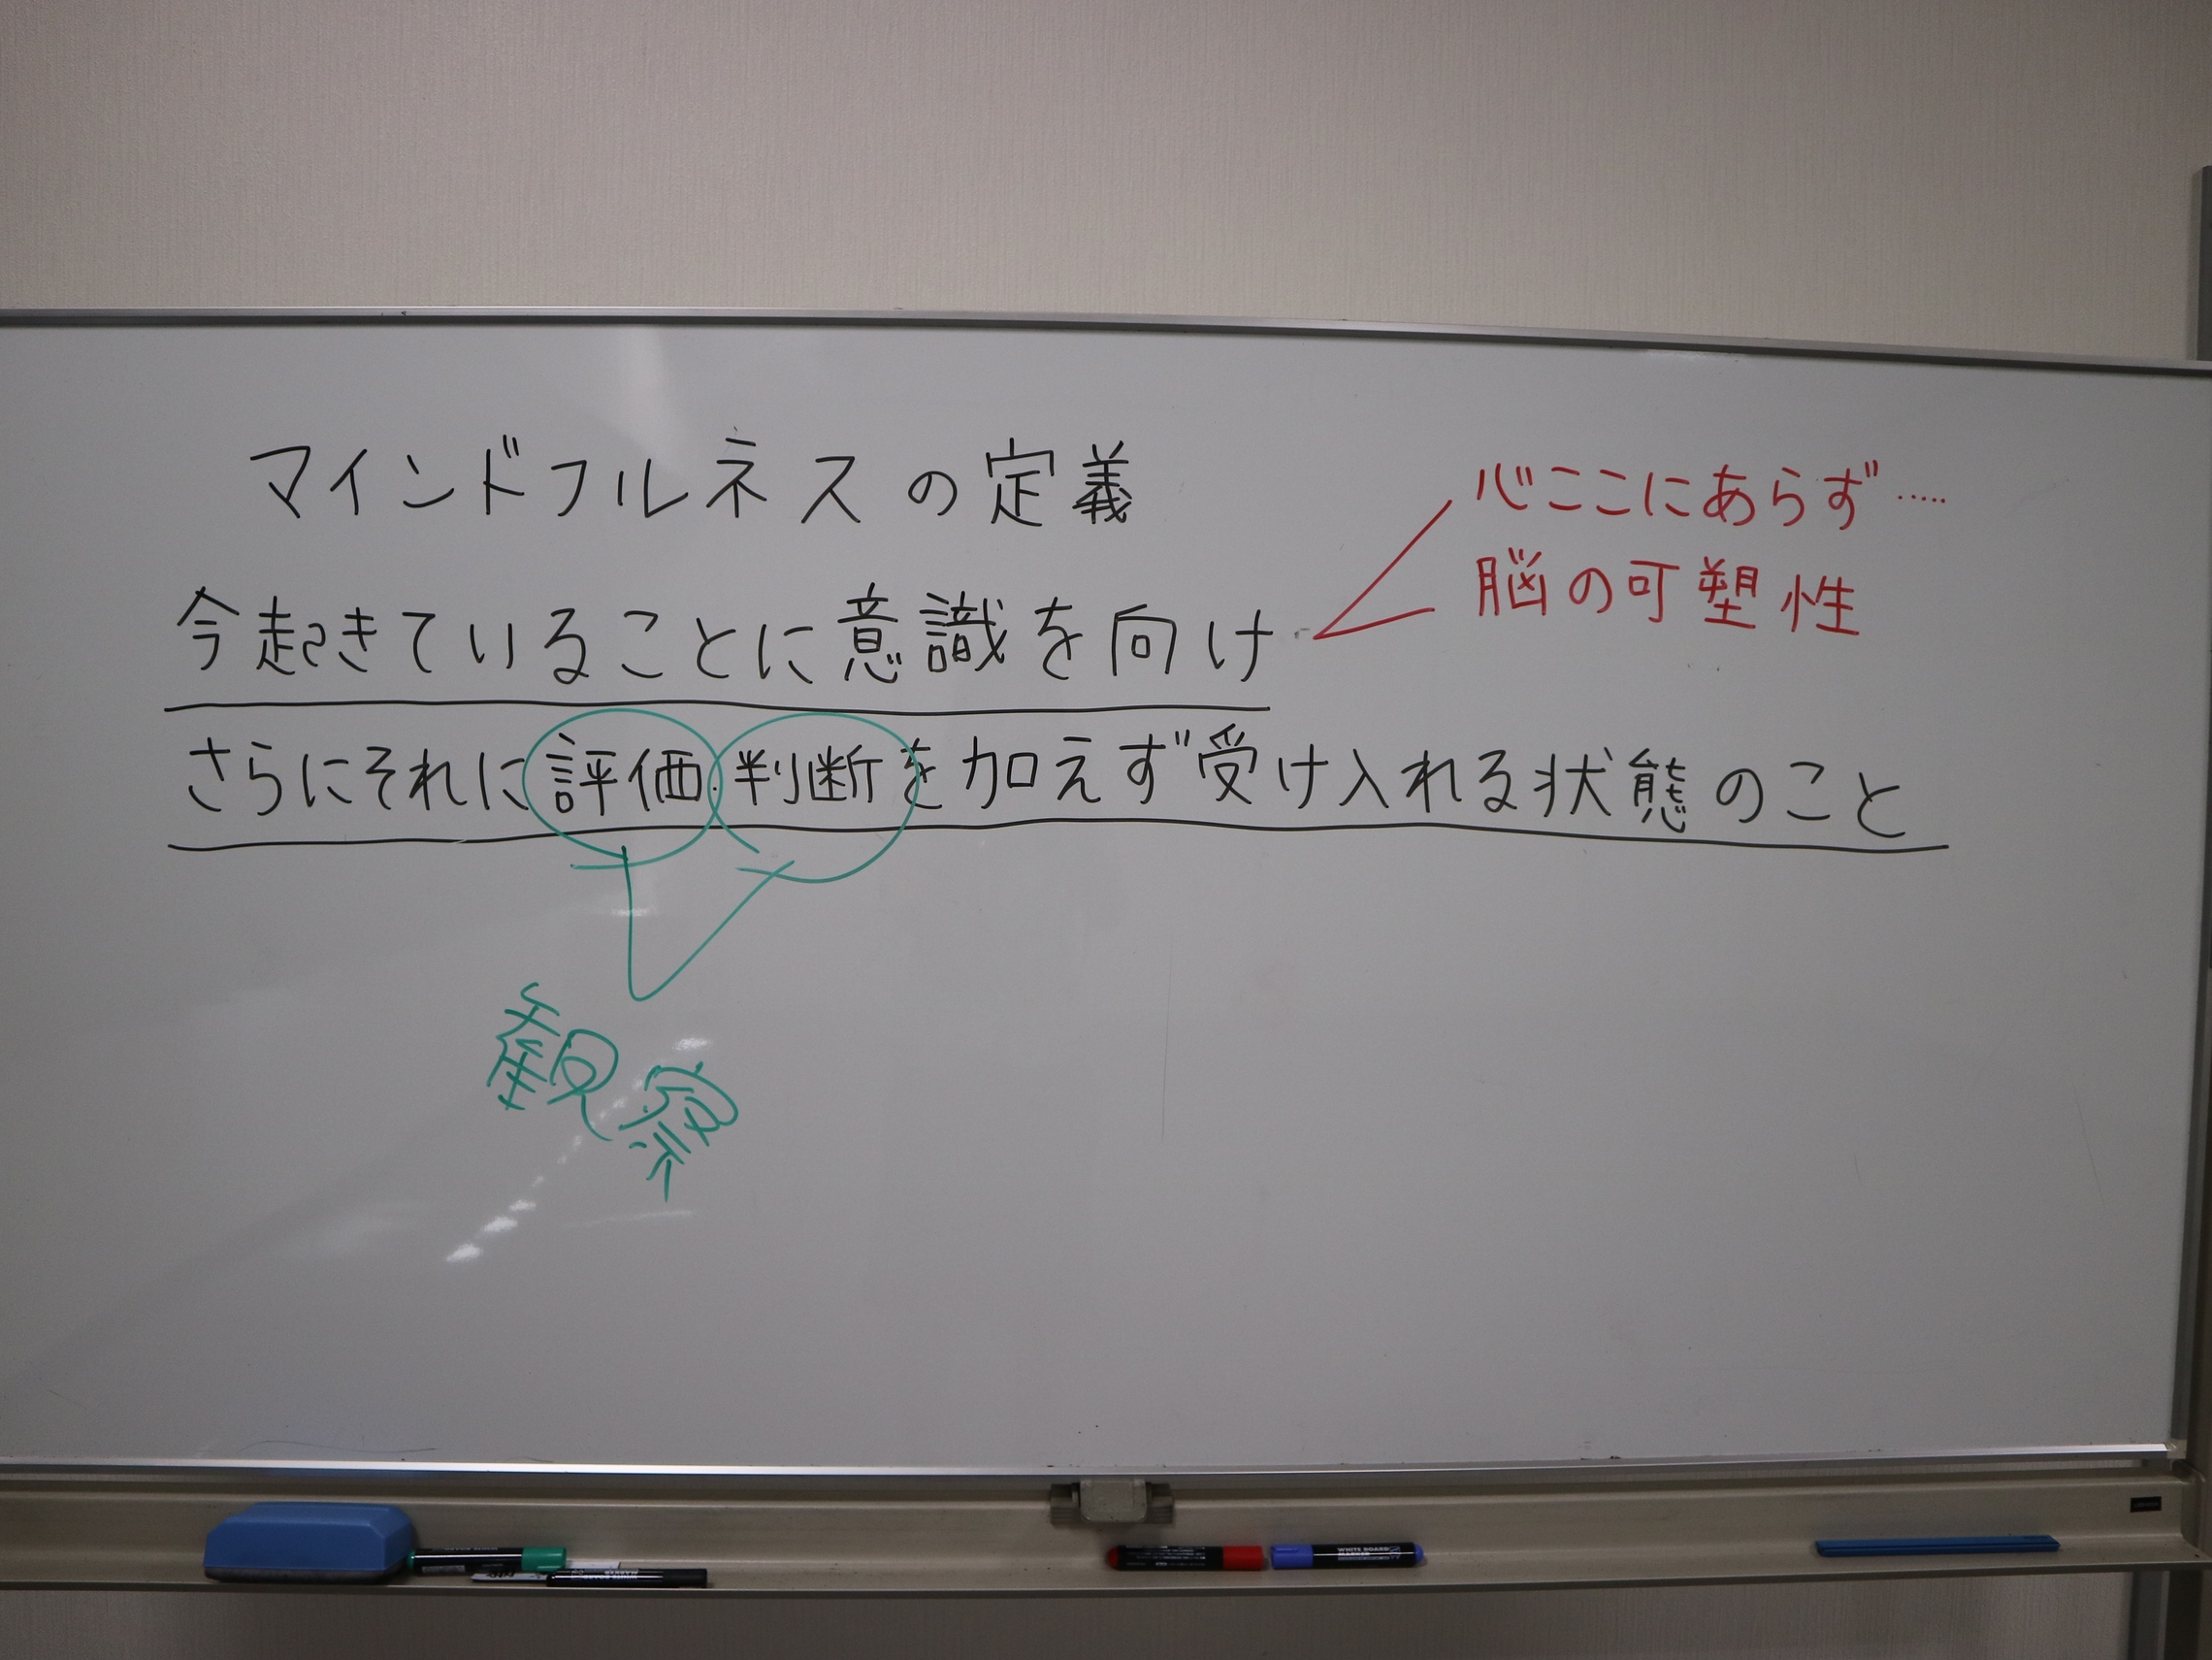 マインドフルネスの定義
心ここにあらず……
脳の可塑性
今起きていることに意識を向け
さらにそれに評価・判断を加えず受け入れる状態のこと
観察
WHITE BOARD
MARKER